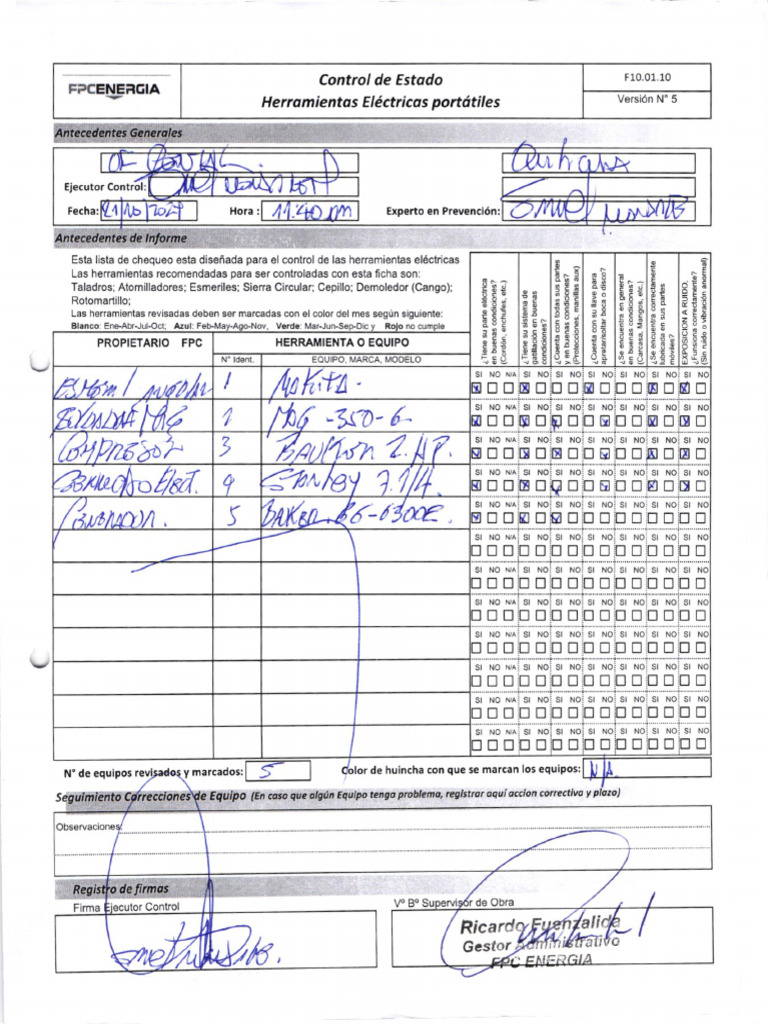 FPCENERGIA
Control de Estado
Herramientas Eléctricas portátiles
F10.01.10
Versión N° 5
Antecedentes Generales
Ejecutor Control:
Fecha: 21/10/2021 Hora : 11:40 am Experto en Prevención:
Antecedentes de Informe
Esta lista de chequeo esta diseñada para el control de las herramientas eléctricas
Las herramientas recomendadas para ser controladas con esta ficha son:
Taladros; Atomilladores; Esmeriles; Sierra Circular; Cepillo; Demoledor (Cango);
Rotomartillo;
Las herramientas revisadas deben ser marcadas con el color del mes según siguiente:
Blanco: Ene-Abr-Jul-Oct; Azul: Feb-May-Ago-Nov, Verde: Mar-Jun-Sep-Dic y Rojo no cumple
¿Tiene su parte eléctrica en buenas condiciones? (Cordón, enchufes, etc.)
¿Tiene su sistema de gatillación en buenas condiciones?
¿Cuenta con todas sus partes y en buenas condiciones? (Protecciones, manillas aux)
¿Cuenta con su llave para apretar/soltar boca o disco?
¿Se encuentra en general en buenas condiciones? (Carcasa, Mangos, etc.)
¿Se encuentra correctamente lubricada en sus partes móviles?
EXPOSICION A RUIDO, ¿Funciona correctamente? (Sin ruido o vibración anormal)
PROPIETARIO FPC HERRAMIENTA O EQUIPO
N° Ident. EQUIPO, MARCA, MODELO
SI NO N/A SI NO SI NO SI NO SI NO SI NO SI NO
1 Makita
SI NO N/A SI NO SI NO SI NO SI NO SI NO SI NO
2 MAG -350-6
SI NO N/A SI NO SI NO SI NO SI NO SI NO SI NO
Compresor 3 2. HP.
SI NO N/A SI NO SI NO SI NO SI NO SI NO SI NO
Elect. 4 Stanley 7.1/4
SI NO N/A SI NO SI NO SI NO SI NO SI NO SI NO
Generador. 5
SI NO N/A SI NO SI NO SI NO SI NO SI NO SI NO
SI NO N/A SI NO SI NO SI NO SI NO SI NO SI NO
SI NO N/A SI NO SI NO SI NO SI NO SI NO SI NO
SI NO N/A SI NO SI NO SI NO SI NO SI NO SI NO
SI NO N/A SI NO SI NO SI NO SI NO SI NO SI NO
SI NO N/A SI NO SI NO SI NO SI NO SI NO SI NO
SI NO N/A SI NO SI NO SI NO SI NO SI NO SI NO
N° de equipos revisados y marcados: 5 Color de huincha con que se marcan los equipos: N/A.
Seguimiento Correcciones de Equipo (En caso que algún Equipo tenga problema, registrar aquí accion correctiva y plazo)
Observaciones:
Registro de firmas
Firma Ejecutor Control
Vº Bº Supervisor de Obra
Ricardo Fuenzalida
Gestor Administrativo
FPC ENERGIA